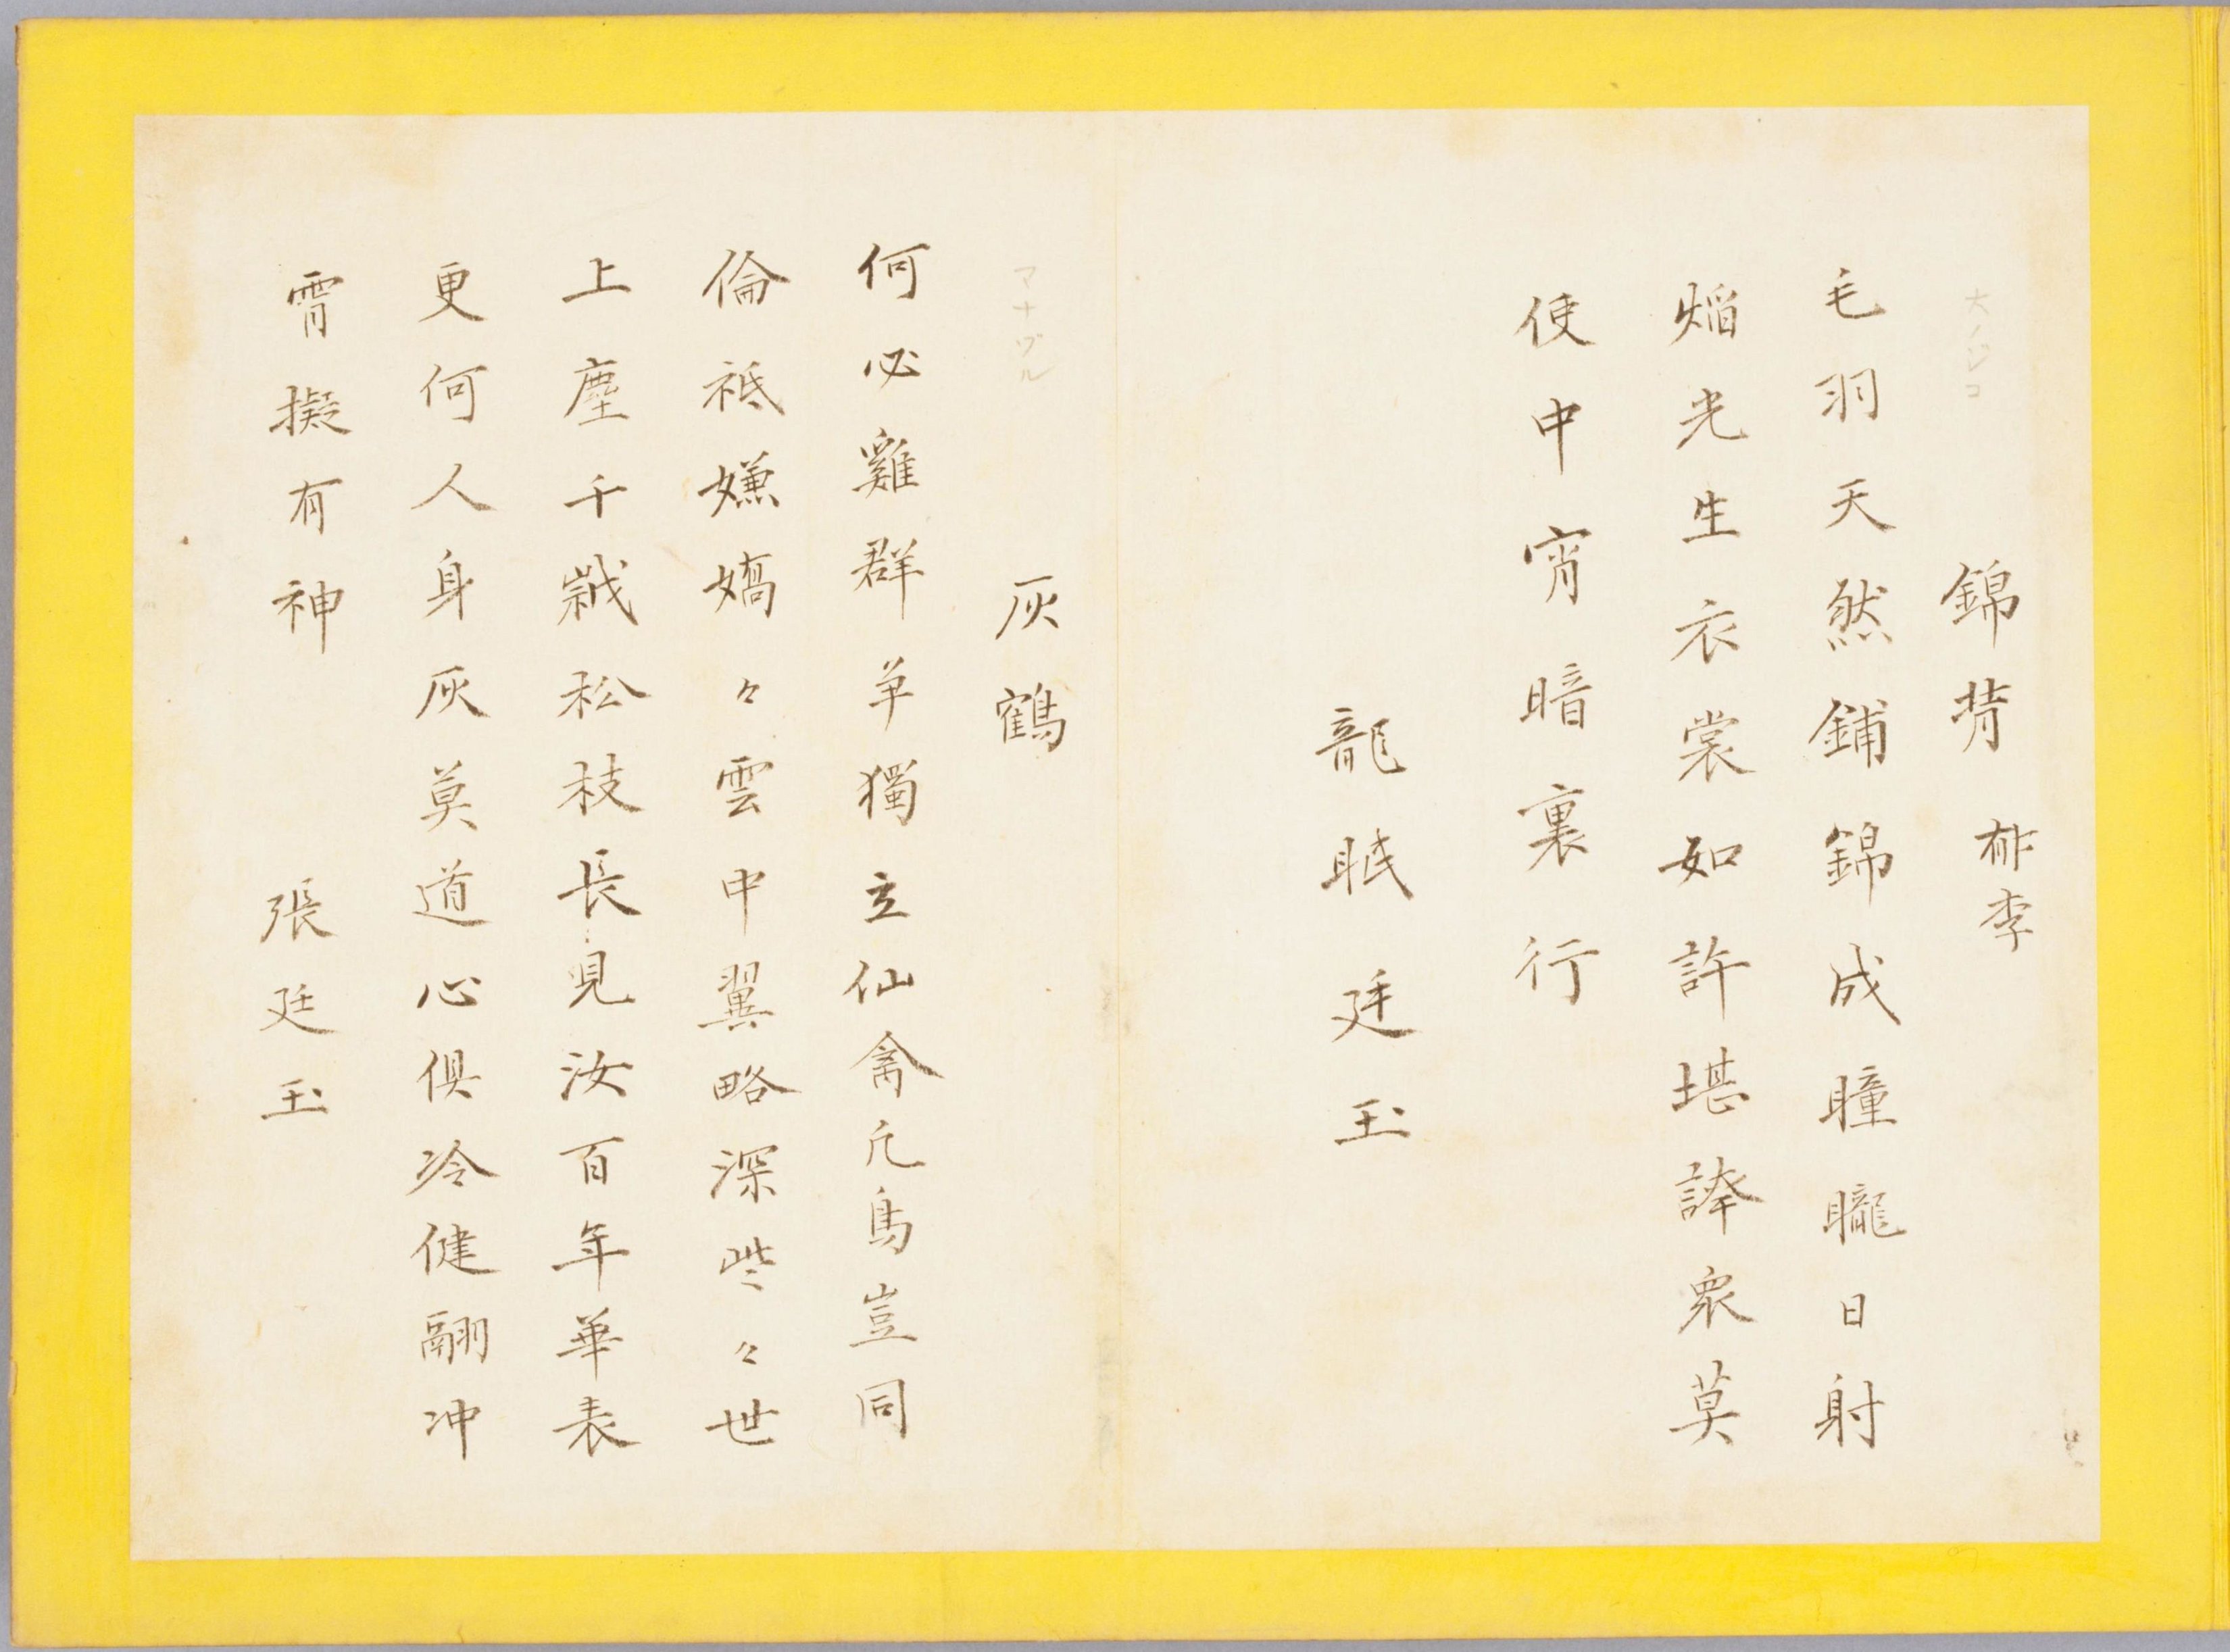 大ノジコ
錦背 郁李
毛羽天然鋪錦成瞳矓日射
焰光生衣裳如許堪誇衆莫
使中宵暗裏行
龍眠廷玉
マナヅル
灰鶴
何必雞群爭獨立仙禽凡鳥豈同
倫祗嫌嬌々雲中翼略深些々世
上塵千歲松枝長見汝百年華表
更何人身灰莫道心俱冷健翮冲
霄擬有神 張廷玉